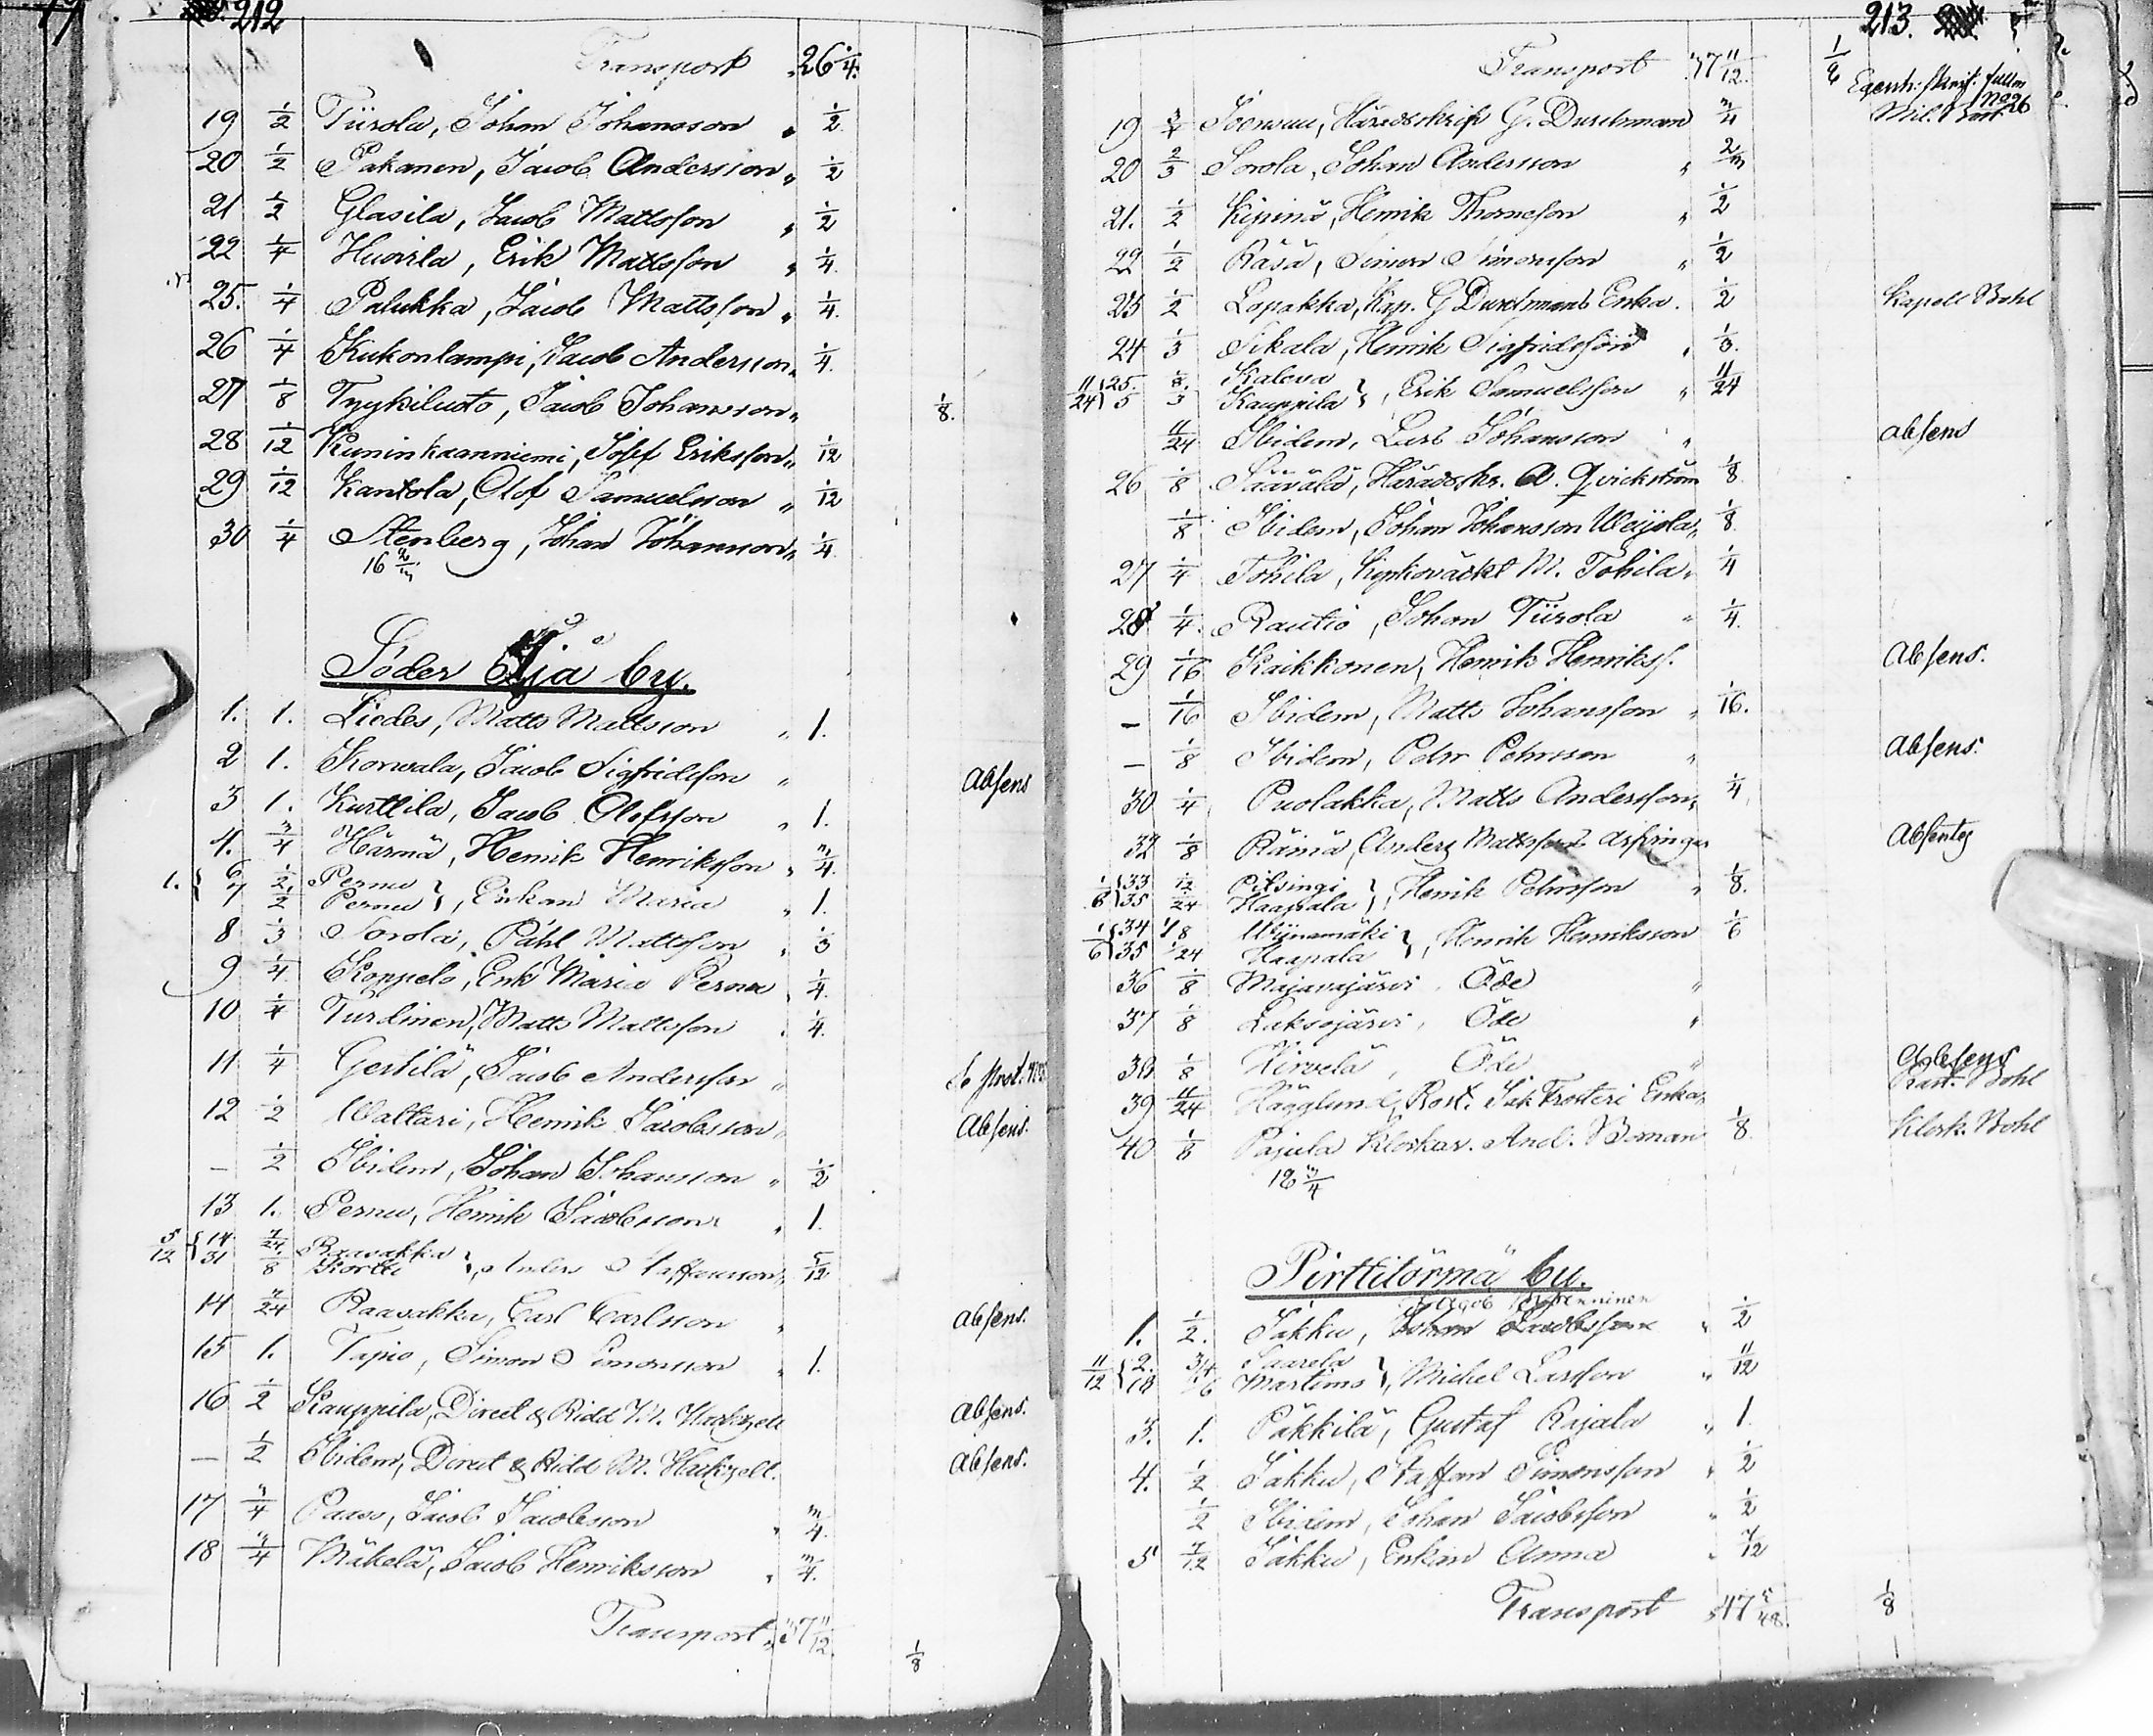 212
Transport 26 1/4.
19 1/2 Tiirola, Johan Johansson " 1/2.
20 1/2 Pakanen, Jacob Andersson " 1/2
21 1/2 Glasila, Jacob Mattsson " 1/2
22 1/4 Huovila, Erik Mattsson " 1/4.
25. 1/4 Palukka, Jacob Mattsson " 1/4.
26 1/4 Kukonlampi, Jacob Andersson " 1/4.
27 1/8 Tyykiluoto, Jacob Johansson " 1/8.
28 1/12 Kuninkaanniemi, Josef Eriksson " 1/12
29 1/12 Kantola, Olof Samuelsson " 1/12
30 1/4 Stenberg, Johan Johansson " 1/4
16 2/3
Söder Ijå by.
1. 1. Liedes, Matts Mattsson " 1.
2 1. Korwala, Jacob Sigfridsson " Absens
3 1. Kurttila, Jacob Olofsson " 1.
4. 3/4 Härmä, Henrik Henriksson " 3/4.
1. { 6 1/2 Pernu
7 1/2 Pernu }, Enkan Maria " 1.
8 1/3 Sorola, Påhl Mattsson " 1/3
9 1/4 Koppelo, Enk Maria Pernu " 1/4.
10 1/4 Turdinen, Matts Mattsson " 1/4.
11 1/4 Gestilä, Jacob Andersson "
12 1/2 Waltari, Henrik Jacobsson " Absens.
— 1/2 Ibidem, Johan Johansson " 1/2
13 1. Pernu, Henrik Jacobsson " 1.
5/12 { 14 7/24 Raasakka
31 1/8 Kortti }, Anders Staffansson " 5/12
14 7/24 Raasakka, Carl Carlsson " Absens.
15 1. Tapio, Simon Simonsson " 1.
16 1/2 Kauppila, Direct & Ridd M. Hackzell Absens.
— 1/2 Ibidem, Direct & Ridd M. Hackzell. Absens.
17 3/4 Paaso, Jacob Jacobsson " 3/4.
18 3/4 Mäkelä, Jacob Henriksson " 3/4.
Transport " 37 11/12. 1/8
213.
Transport 37 11/12. 1/8
19 3/4 Häradsskrif G. Durchman 3/4 Mil. Bost No 26
20 2/3 Sorola, Johan Andersson " 2/3
21. 1/2 Kipinä, Henrik Thomesson " 1/2
22 1/2 Räsä, Simon Simonsson " 1/2
23 1/2 Lapakka, Kap. G Durchmans Enka. 1/2 Kapell Bohl
24 1/3 Sikala, Henrik Sigfridsson " 1/3.
11/24 { 25. 1/8. Kaleva
5 1/3 Kauppila }, Erik Samuelsson " 11/24
11/24 Ibidem, Lars Johansson " absens
26 1/8 Säävälä, Häradsskr. A. Qvickström 1/8
1/8 Ibidem, Johan Johansson Weijola " 1/8
27 1/4 Tohila, Kyrkovärd M. Tohila " 1/4
28 1/4. Rautio, Johan Tiirola " 1/4.
29 1/16 Kaikkonen, Henrik Henrikss. Absens.
— 1/16 Ibidem, Matts Johansson " 1/16.
— 1/8 Ibidem, Pehr Pehrsson " Absens.
30 1/4 Puolakka, Matts Andersson " 1/4
32 1/8 Rämä, Anders Mattssons Arfvingar Absentes
1/8 { 33 1/12 Pitsingi
35 1/24 Haapala }, Henrik Pehrsson " 1/8.
1/6 { 34 1/8 Wiinamäki
35 1/24 Haapala }, Henrik Henriksson 1/6
36 1/8 Majavajärvi, Öde "
37 1/8 Laksojärvi, Öde "
38 1/8 Hirvelä, Öde "
39 11/24 Hägglund, Rost. Isak Frosteri Enka " Absens
40 1/8 Pajula Klockar. And. Boman 1/8 Klock. Bohl
18 3/4
Pirttitörmä by.
1. 1/2. Jakku, Johan Jacobsson " 1/2
11/12 { 2. 3/4 Saarela
18 1/6 Martimo }, Michel Larsson " 11/12
3. 1. Päkkilä, Gustaf Rajala " 1.
4. 1/2 Jakku, Staffan Simonsson " 1/2
1/2 Ibidem, Johan Jacobsson " 1/2
5 7/12 Jakku, Enkan Anna " 7/12
Transport 47 5/48. 1/8